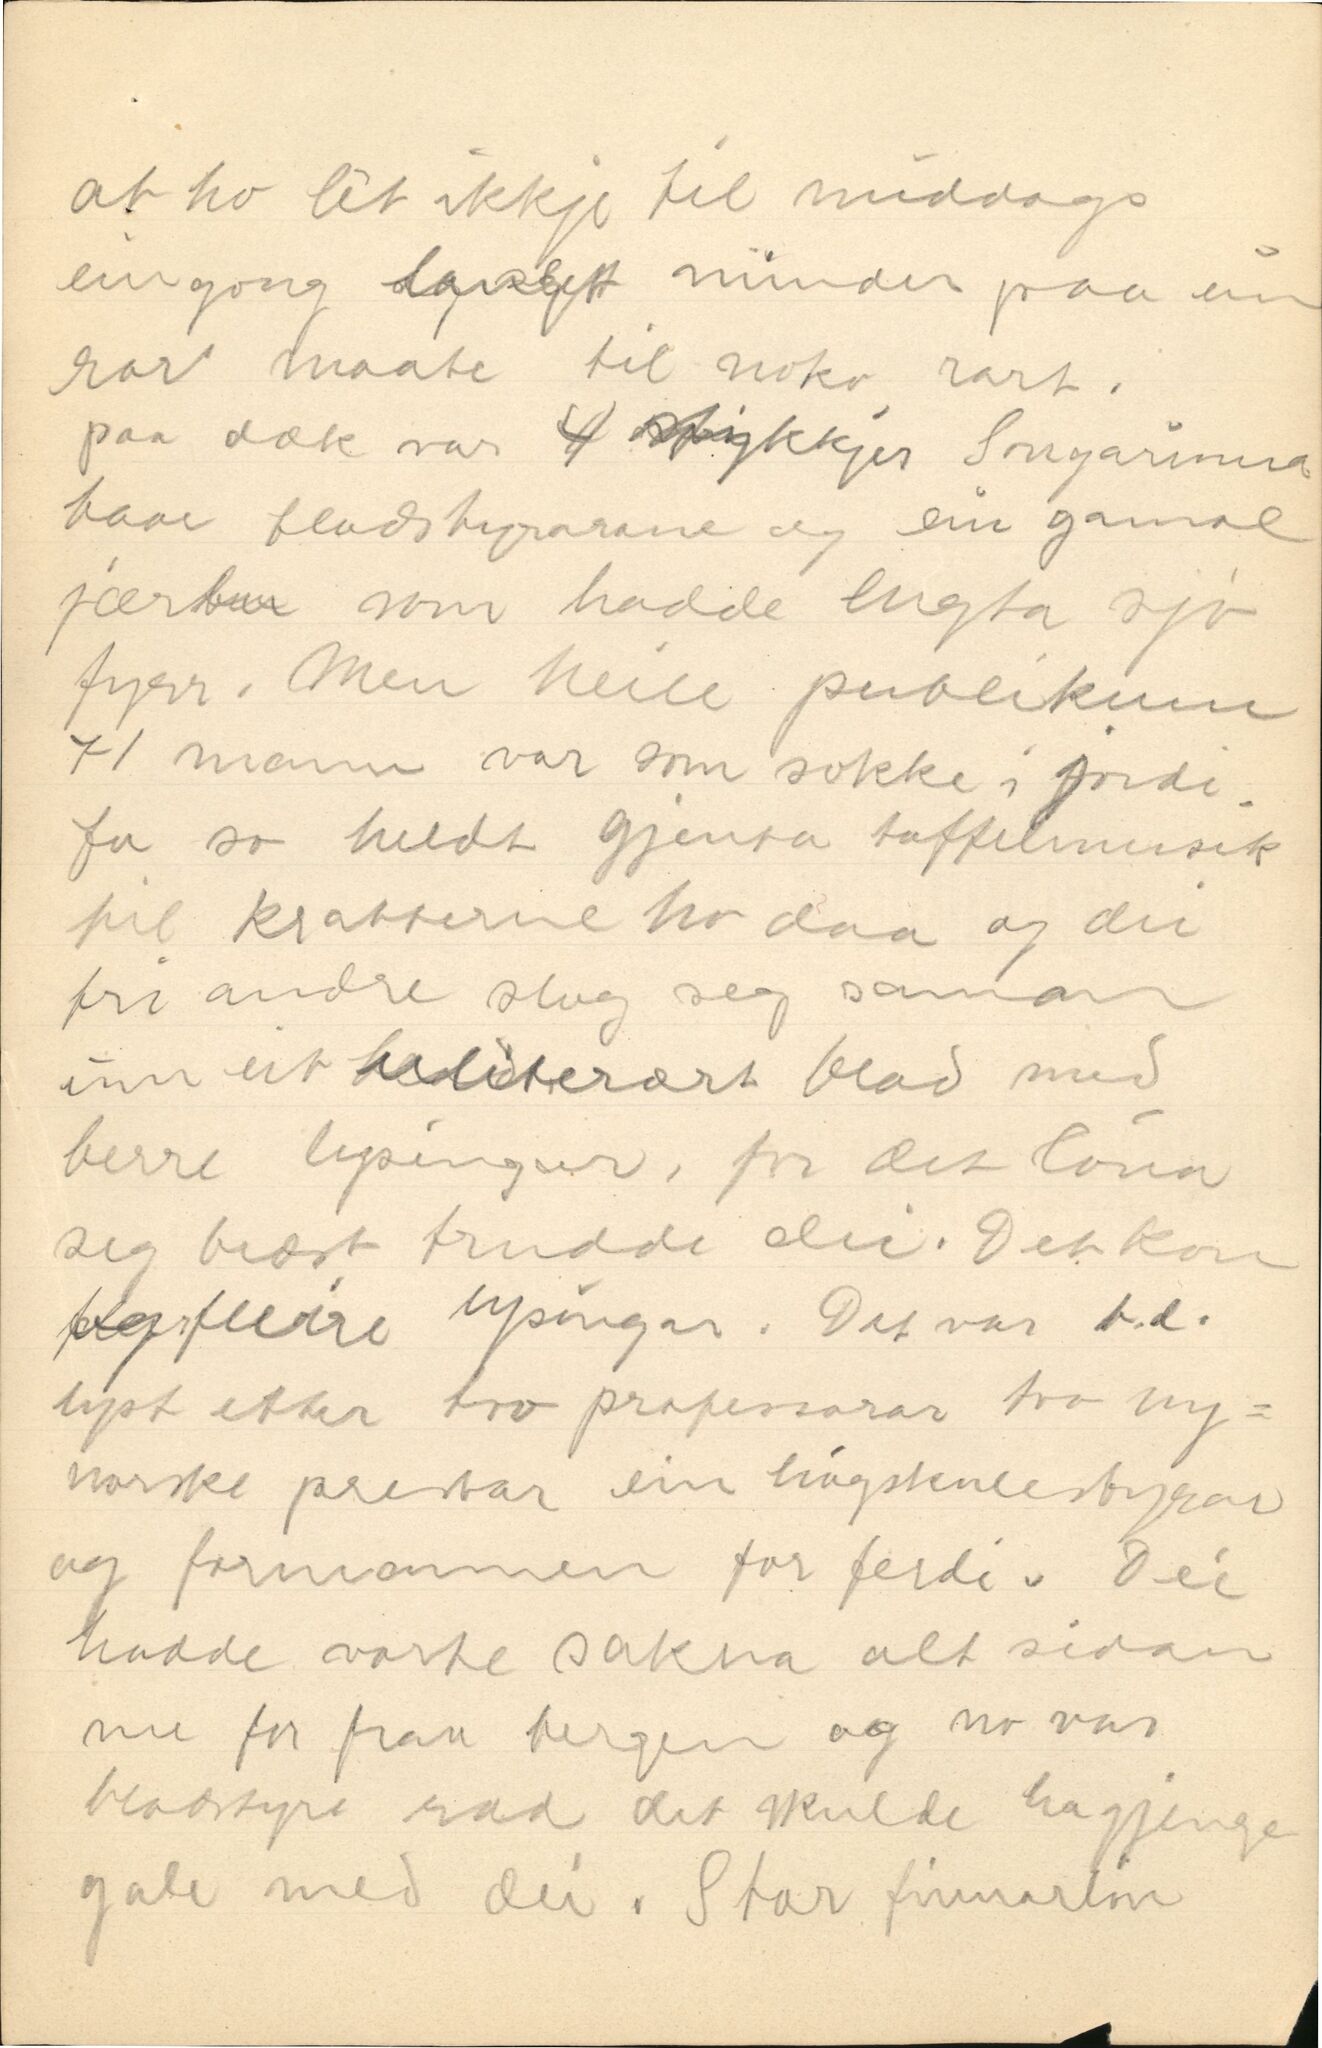 at ho lêt ikkje til middags
ein gong minder paa ein
rar maate til noko rart.
paa dæk var 4 stykkjer Songarinna
baae bladstyrarane og ein gamal
jærbu som hadde lugta sjø
fyrr. Men heile publikum
71 mann var som sokke i jordi.
Ja so heldt gjenta taffelmusik
til kratterne ho daa og dei
tri andre slog seg saman
um eit literært blad med
berre lysingar, for det løna
seg bæst trudde dei. Det kom
fleire lysingar. Dat var t.d.
lyst etter tvo professorar tvo ny=
norske prestar ein høgskulestyrar
og formannen for ferdi. Dei
hadde vorte sakna alt sidan
me for fraa bergen og no var
bladstyre rad det skulde ha gjenge
gale med dei. Stor finnarløn